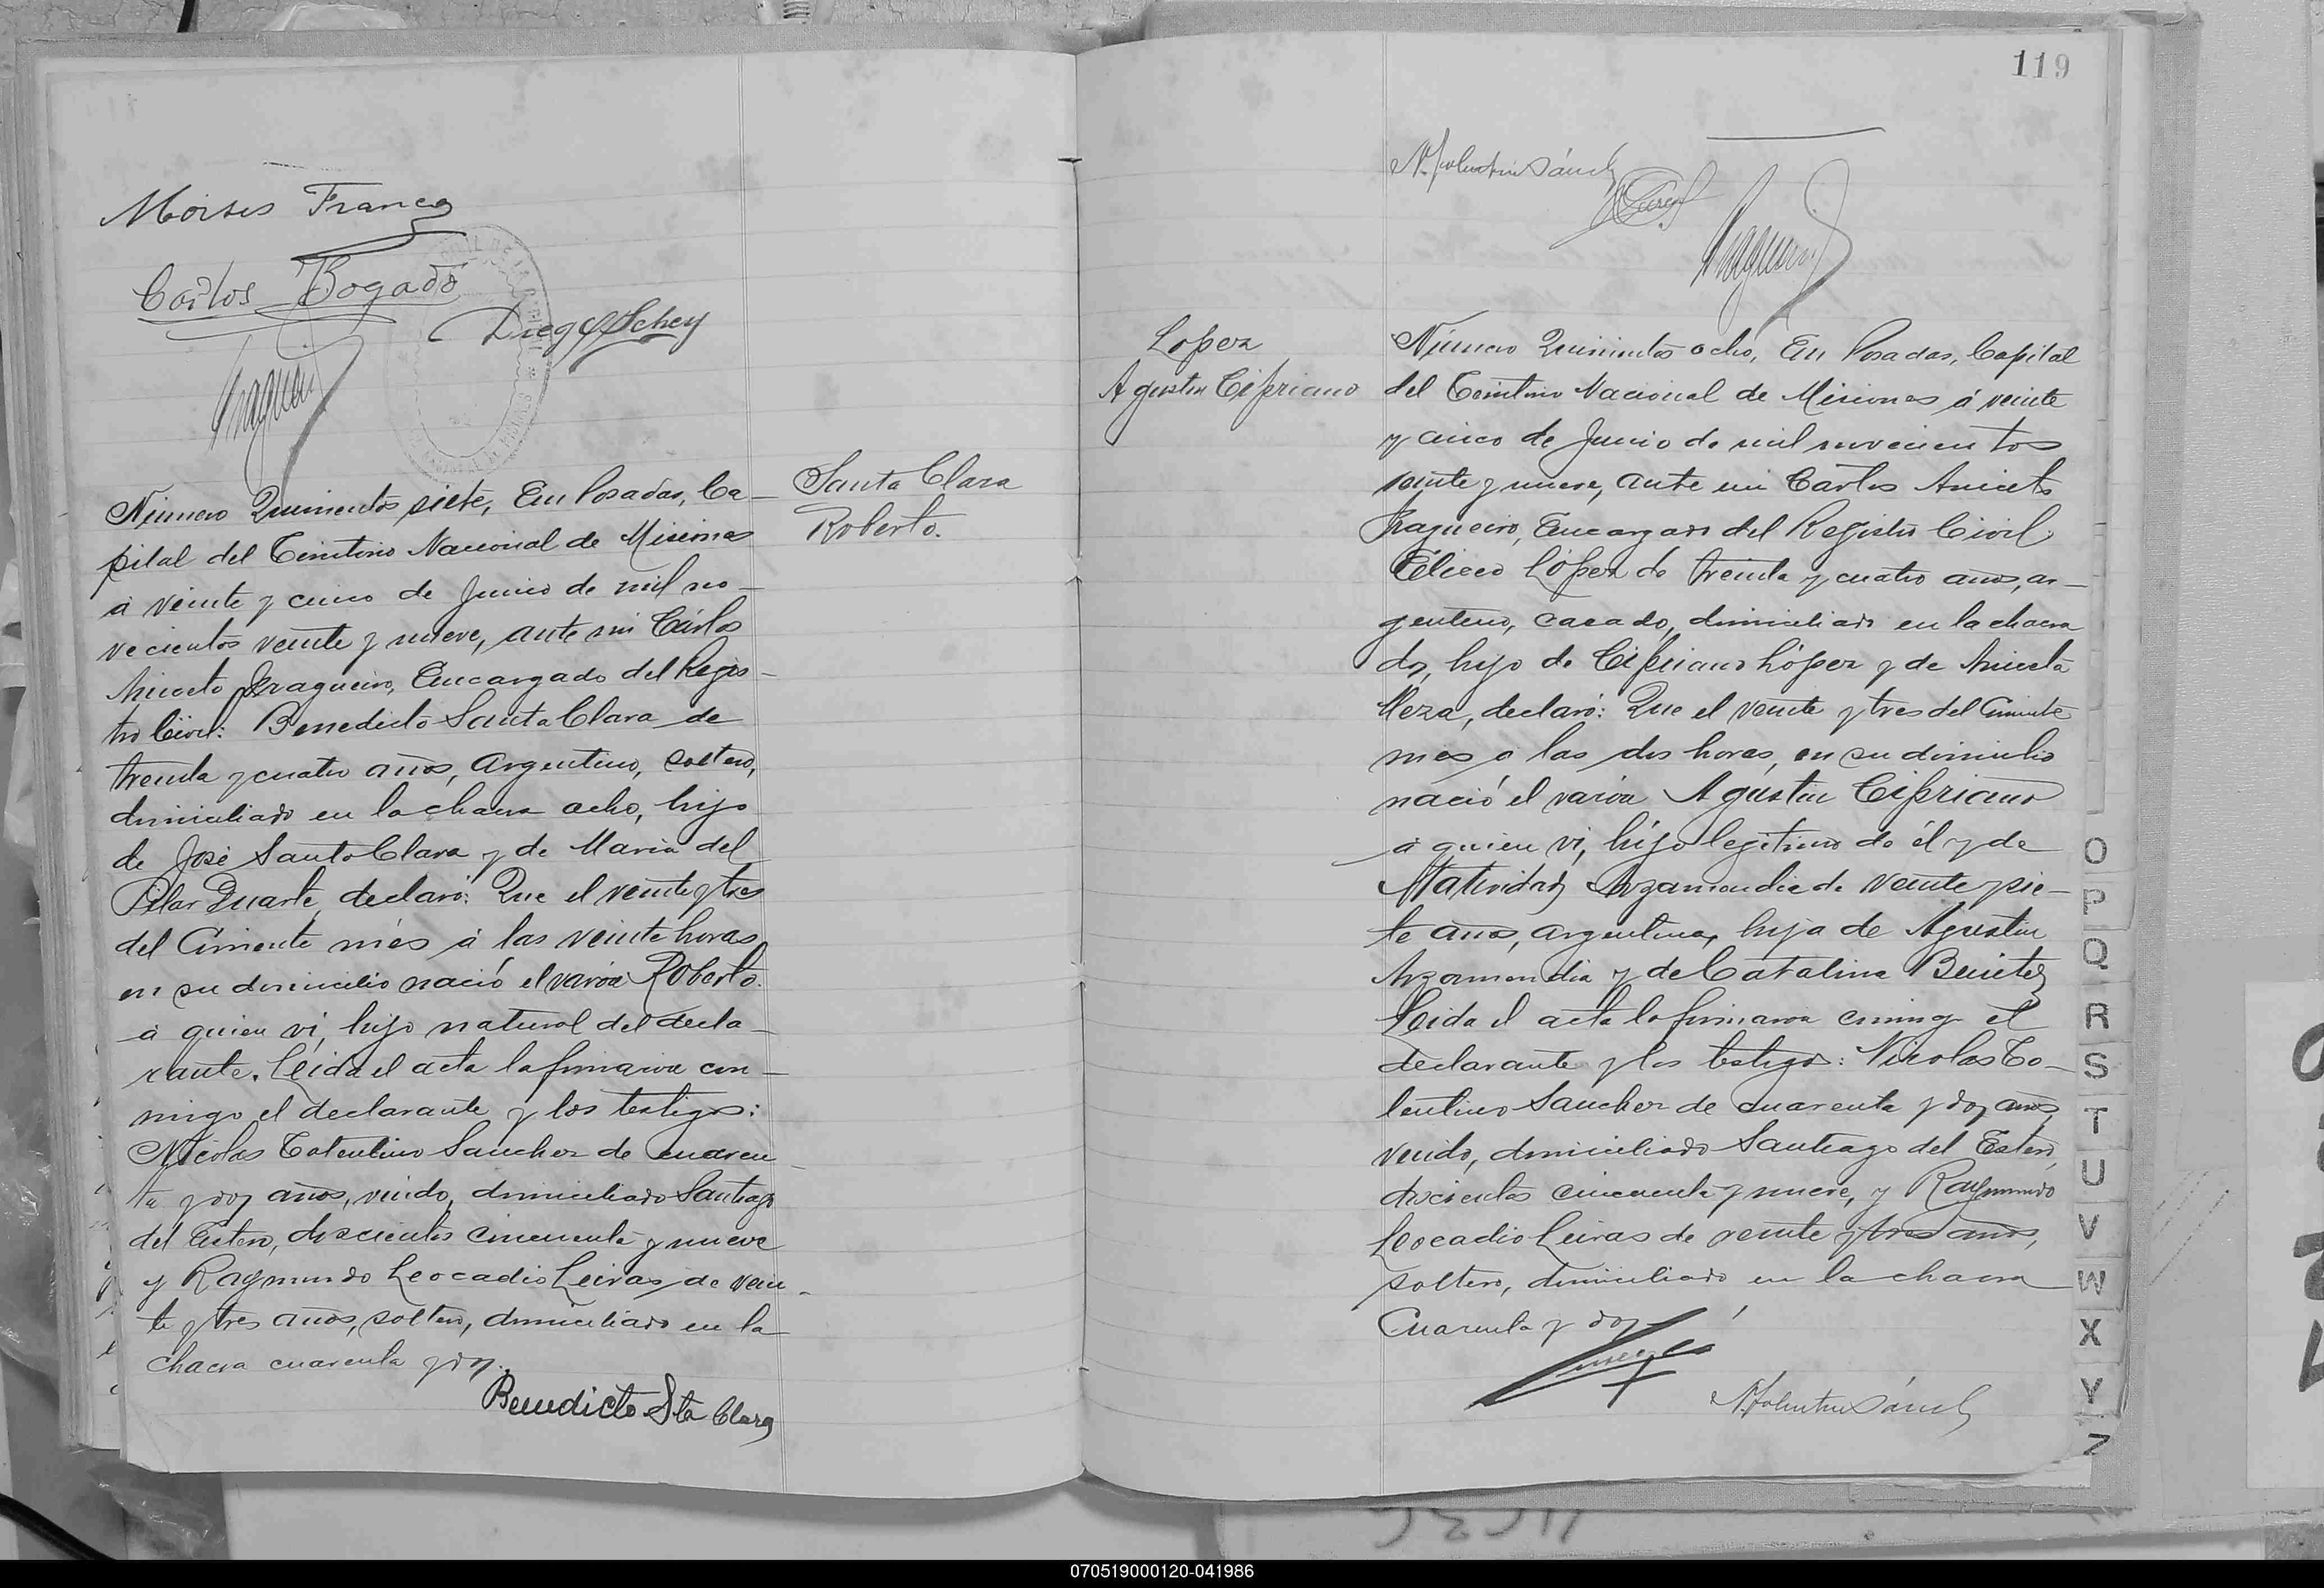 Moises Franco
Carlos Bogado
Diego Schey
Santa Clara
Roberto.
Número Quinientos siete, En Posadas, Ca-
pital del Territorio Nacional de Misiones
á veinte y cinco de Junio de mil no-
vecientos veinte y nueve, ante mi Cárlos
Aniceto Fragueiro, Encargado del Regis-
tro Civil: Benedicto Santa Clara de
treinta y cuatro años, Argentino, soltero,
domiciliado en la chacra ocho, hijo
de José Santa Clara y de Maria del
Pilar Duarte, declaró: Que el veinte y tres
del Corriente més á las veinte horas
en su domicilio nació el varon Roberto.
á quien ví, hijo natural del decla-
rante. Leida el acta la firmaron con-
migo el declarante y los testigos:
Nicolas Tolentino Sanchez de cuaren-
ta y dos años, viudo, domiciliado Santiago
del Estero, doscientos cincuenta y nueve
y Raymundo Leocadio Leivas de vein-
te y tres años, soltero, domiciliado en la
chacra cuarenta y dos.
Benedicto Sta Clara
119
N. Tolentino Sánch
Fragueiro
Lopez
Agustin Cipriano
Número Quinientos ocho, En Posadas, Capital
del Territorio Nacional de Misiones á veinte
y cinco de Junio de mil novecientos
veinte y nueve, ante mi Cárlos Aniceto
Fragueiro, Encargado del Registro Civil:
Eliceo López de treinta y cuatro años, ar-
gentino, casado, domiciliado en la chacra
dos, hijo de Cipriano López y de Aniceta
Meza, declaró: Que el veinte y tres del Corriente
mes a las dos horas, en su domicilio
nació el varon Agustin Cipriano
á quien ví, hijo legítimo de él y de
Natividad Arzamendia de veinte y sie-
te años, argentina, hija de Agustin
Arzamendia y de Catalina Benitez
Leida el acta la firmaron conmigo el
declarante y los testigos: Nicolas To-
lentino Sanchez de cuarenta y dos años,
viudo, domiciliado Santiago del Estero,
doscientos cincuenta y nueve, y Raymundo
Leocadio Leivas de veinte y tres años,
soltero, domiciliado en la chacra
Cuarenta y dos
N. Tolentino Sánch
O
P
Q
R
S
T
U
V
W
X
Y
Z
070519000120-041986